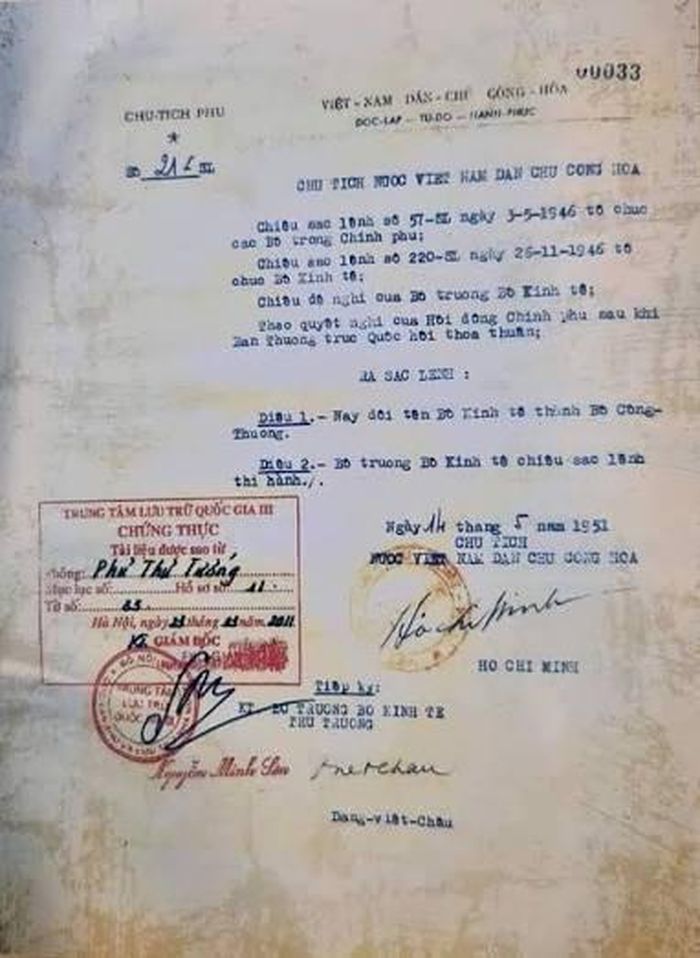 00033
CHU-TICH PHU
VIỆT-NAM DÂN-CHỦ CỘNG-HÒA
ĐỘC-LẬP — TỰ-DO — HẠNH-PHÚC
CHU TICH NUOC VIET NAM DAN CHU CONG HOA
Chiêu sac lênh số 57-SL ngày 3-5-1946 tô chuc
cac Bô trong Chinh phu;
Chiêu sac lênh số 220-SL ngày 26-11-1946 tô
chuc Bô Kinh tê;
Chiêu đê nghi cua Bô truong Bô Kinh tê;
Theo quyêt nghi cua Hôi đông Chinh phu sau khi
Ban Thuong truc Quôc hôi thoa thuân;
RA SAC LENH :
Diêu 1.- Nay đôi tên Bô Kinh tê thành Bô Công-
Thuong.
Diêu 2.- Bô truong Bô Kinh tê chiêu sac lênh
thi hành./.
Ngày 14 thang 5 nam 1951
CHU TICH
NUOC VIET NAM DAN CHU CONG HOA
Hồ Chí Minh
HO CHI MINH
TRUNG TÂM LƯU TRỮ QUỐC GIA III
CHỨNG THỰC
Tài liệu được sao từ
Phông: Phủ Thủ Tướng
Mục lục số: Hồ sơ số 11
Tờ số: 33
Hà Nội, ngày 23 tháng năm 2011
GIÁM ĐỐC
TRUNG TÂM
LƯU TRỮ
QUỐC GIA III
Nguyễn Minh Sơn
Tiêp ky:
KT BO TRUONG BO KINH TE
THU TRUONG
Dang-viêt-Châu